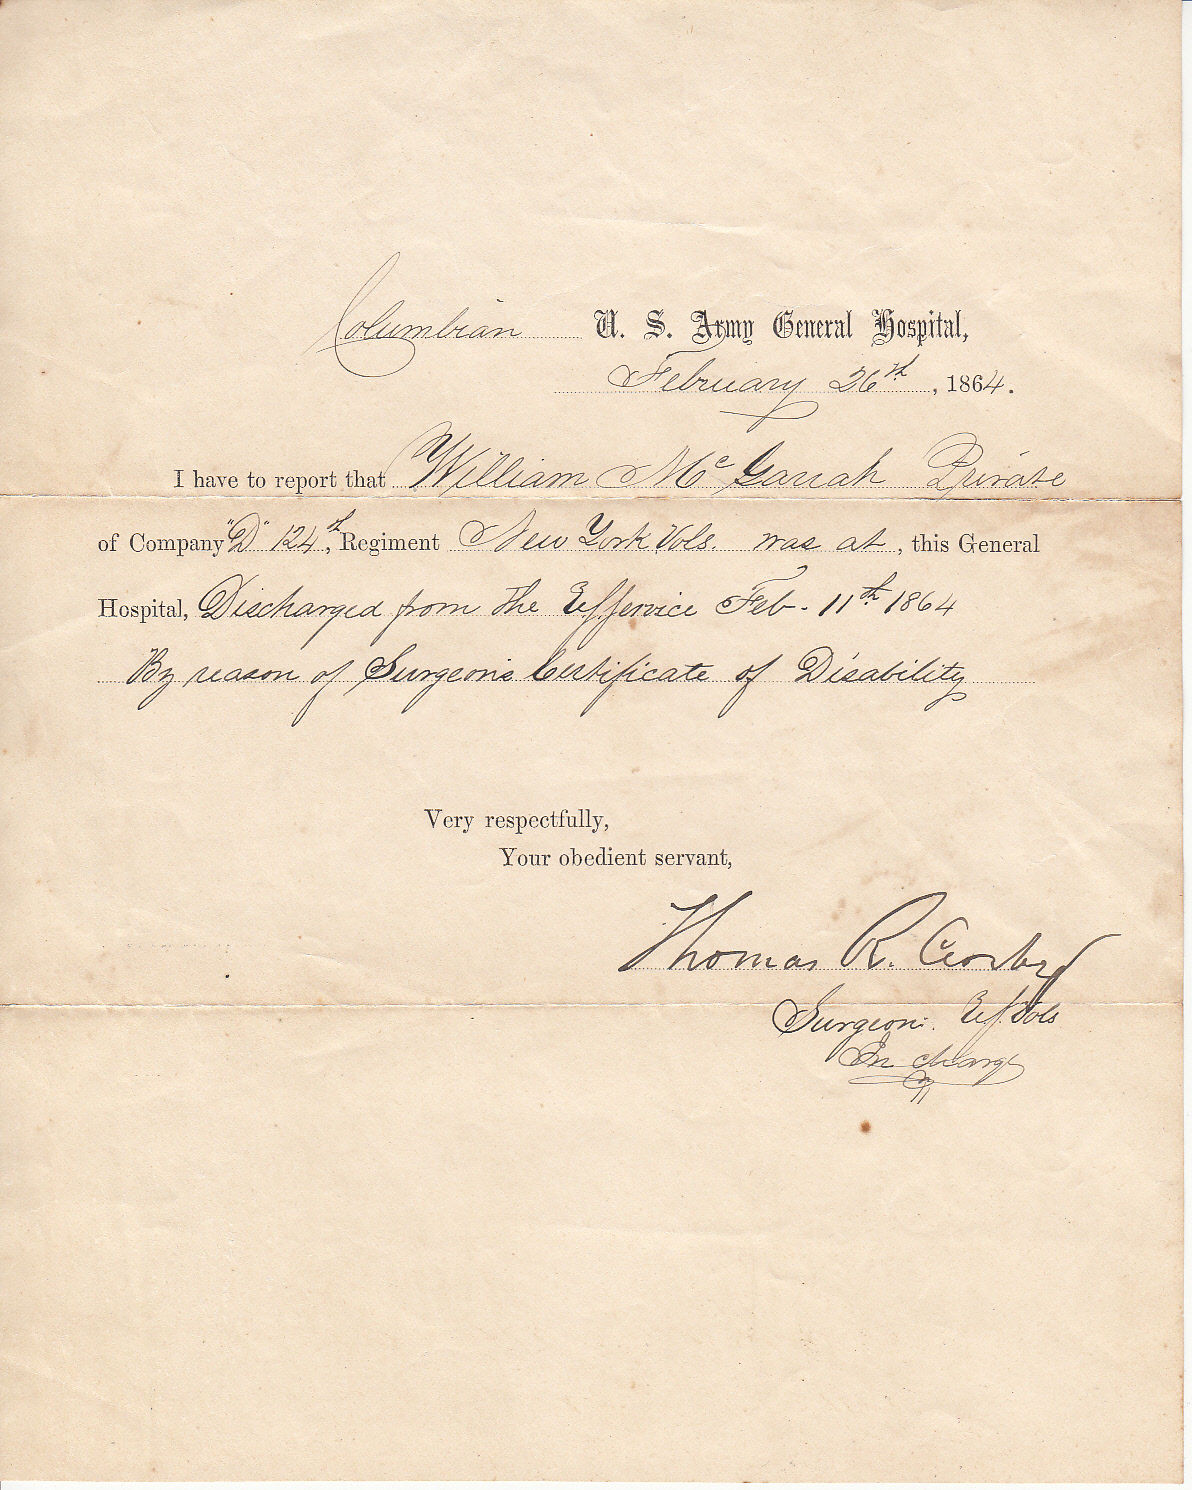 Columbian U. S. Army General Hospital,
February 26th, 1864.
I have to report that William Mc Garrah Private
of Company "D" 124th, Regiment New York Vols. was at, this General
Hospital, Discharged from the US Service Feb. 11th 1864
By reason of Surgeons Certificate of Disability
Very respectfully,
Your obedient servant,
Thomas R. Crosby
Surgeon. U.S. Vols
In charge